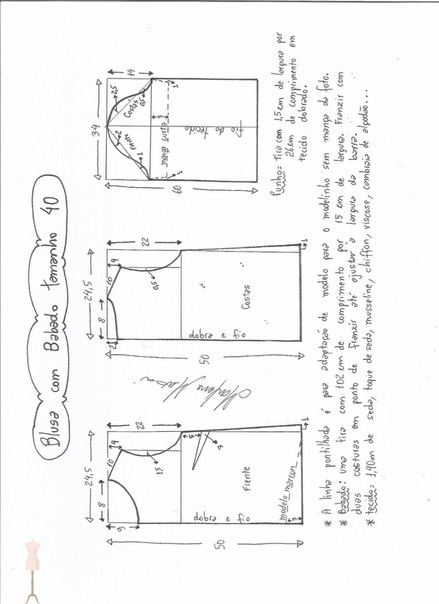 Blusa com Babado tamanho 40
24,5
8
10
4
9
22
1,5
3
3
Frente
dobra e fio
modelo marcan
2
1
50
24,5
8
10
4
2
22
0,5
Costas
dobra e fio
1
50
34
14
2,5
0,5
Costas
2
Frente
1
fio do tecido
60
Punho= tira com 15cm de largura por
26cm de comprimento em
tecido dobrado.
* A linha pontilhada é para adaptação de modelo para o modelinho sem manga da foto.
* Babado: uma tira com 102cm de comprimento por 15 cm de largura. Franzir com
duas costuras em ponto de franzir até ajustar a largura da barra.
* tecido= 1,40m de seda, toque de seda, musseline, chiffon, viscose, cambraia de algodão...